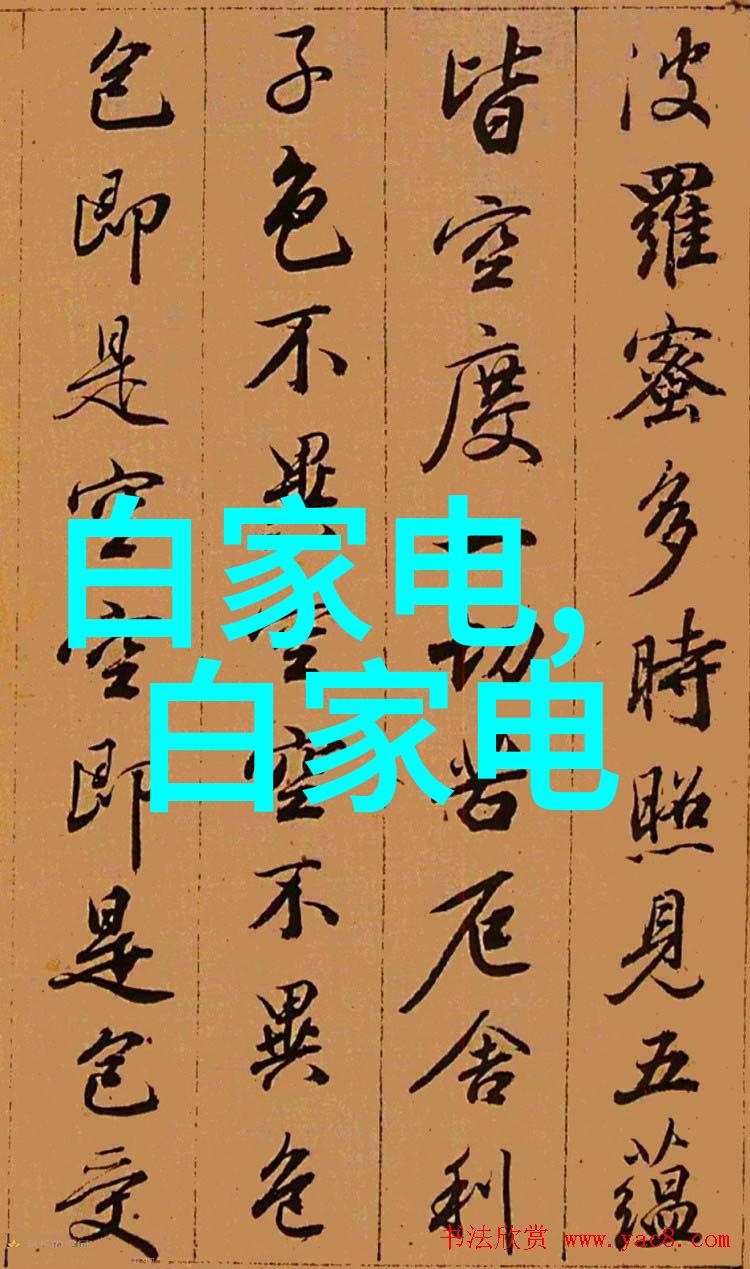 波羅蜜多時照見五蘊
皆空度一切苦厄舍利
子色不異空空不異色
色即是空空即是色受
白家电,
白家电
书法欣赏 www.yac8.com